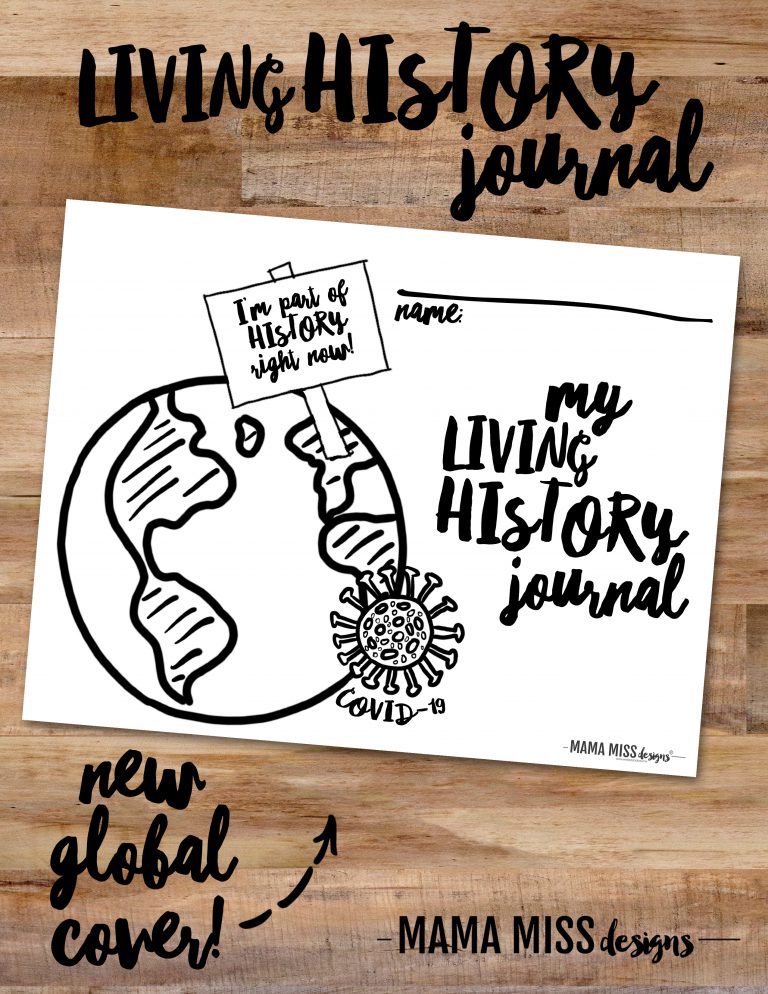 LIVING HISTORY
journal
I'm part of
HISTORY
right now!
name:
my
LIVING
HISTORY
journal
COVID-19
MAMA MISS designs
new
global
cover!
MAMA MISS designs